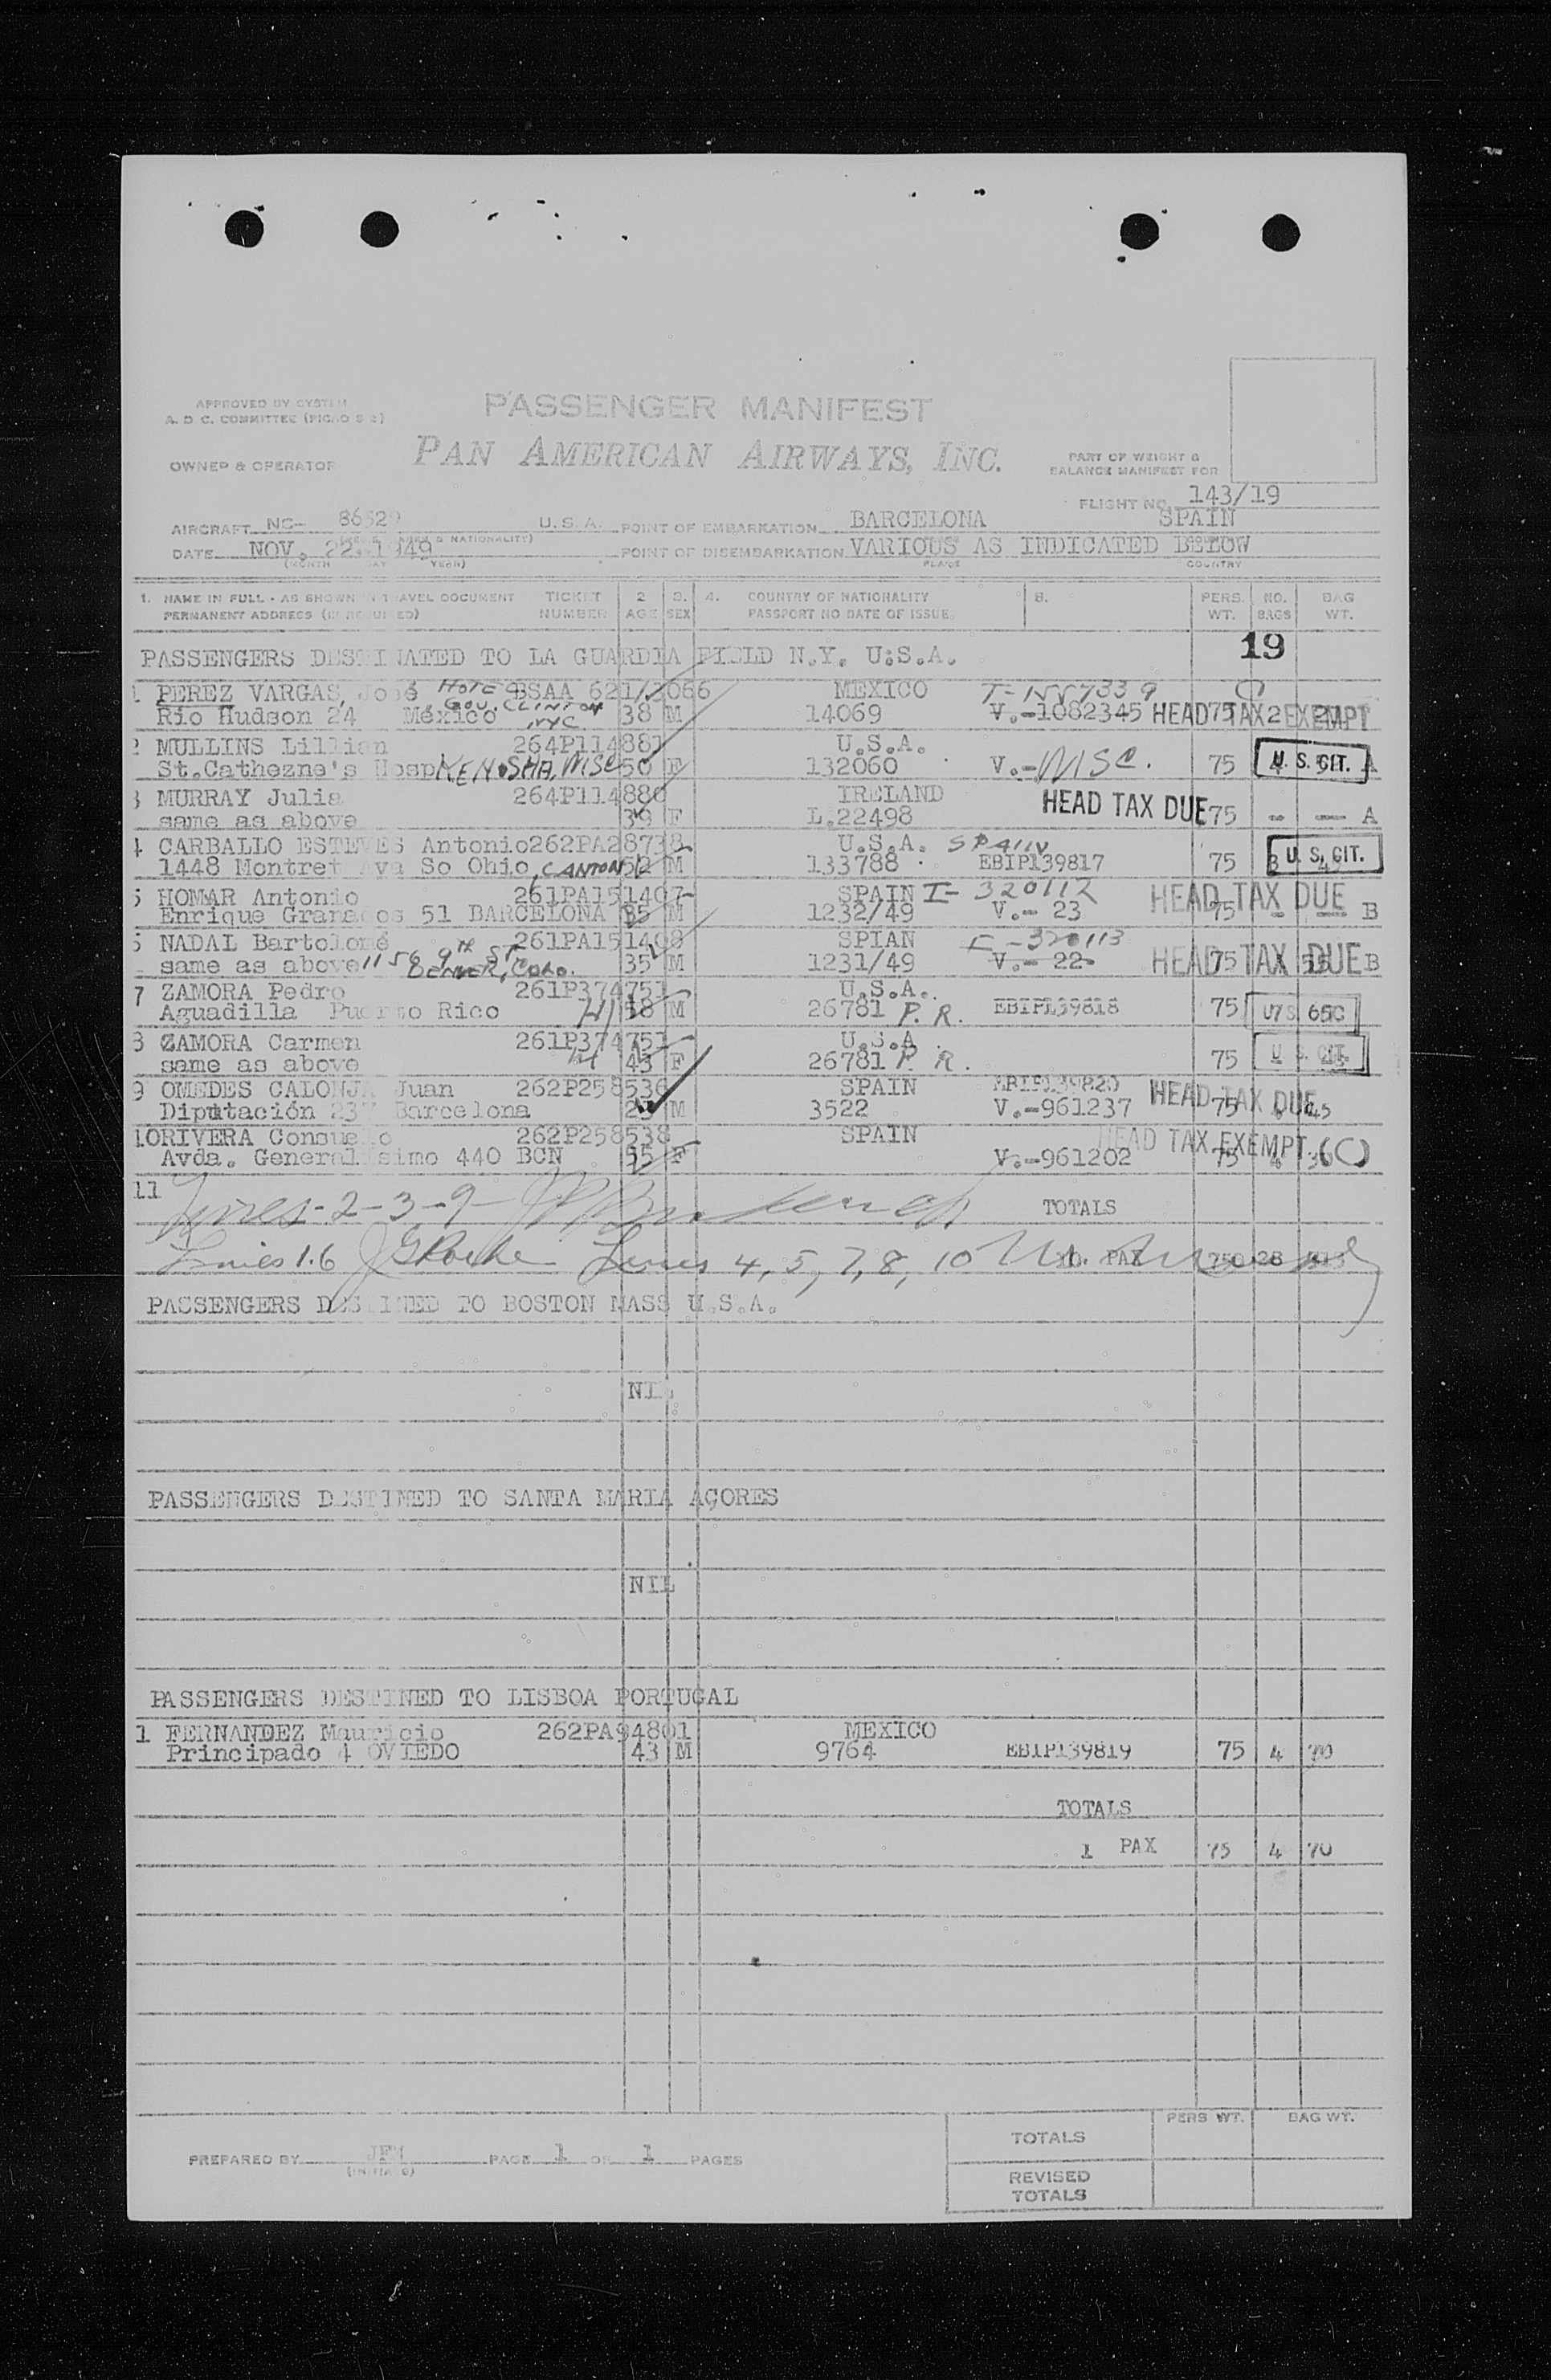 APPROVED BY SYSTEM
A. D C. COMMITTEE (PICAO S 2)
PASSENGER MANIFEST
OWNER & OPERATOR
PAN AMERICAN AIRWAYS, INC.
PART OF WEIGHT &
BALANCE MANIFEST FOR
FLIGHT NO. 143/19
AIRCRAFT NC- U.S.A. POINT OF EMBARKATION BARCELONA SPAIN
DATE NOV. 22 1949 POINT OF DISEMBARKATION VARIOUS AS INDICATED BELOW
(MONTH DAY YEAR) PLACE COUNTRY
1. NAME IN FULL - AS SHOWN IN TRAVEL DOCUMENT TICKET 2 3. 4. COUNTRY OF NATIONALITY 5. PERS. NO. BAG
PERMANENT ADDRESS (IF REQUIRED) NUMBER AGE SEX PASSPORT NO DATE OF ISSUE. WT. BAGS WT.
PASSENGERS DESTINATED TO LA GUARDIA FIELD N.Y. U.S.A. 19
1 PEREZ VARGAS, José HOTEL BSAA 621/3066 MEXICO
GOV. CLINTON
Rio Hudson 24 México NYC 38 M 14069 V.-1082345 HEAD TAX EXEMPT 75
2 MULLINS Lillian 264P114881 U.S.A.
St.Cathezne's Hosp KENOSHA, WISC 50 F 132060 V.- WISC. 75 U. S. CIT. A
3 MURRAY Julia 264P114880 IRELAND
same as above 39 F L.22498 HEAD TAX DUE 75 - -- A
4 CARBALLO ESTEVES Antonio 262PA28738 U.S.A. SPAIN
1448 Montret Ava So Ohio, CANTON 52 M 133788 EBIP139817 75 3 U. S. CIT.
5 HOMAR Antonio 261PA151407 SPAIN I- 320112
Enrique Granados 51 BARCELONA 35 M 1232/49 V.- 23 HEAD TAX DUE 75 - -- B
6 NADAL Bartolomé 261PA151408 SPIAN I-320113
same as above 1156 9TH ST. DENVER, COLO. 35 M 1231/49 V.- 22 HEAD TAX DUE 75 B
7 ZAMORA Pedro 261P374751 U.S.A.
Aguadilla Puerto Rico M 26781 P.R. EBIP139818 75
8 ZAMORA Carmen 261P374751 U.S.A.
same as above 43 F 26781 P. R. 75 U. S. CIT.
9 OMEDES CALONJA Juan 262P258536 SPAIN EBIP139820
Diputación 237 Barcelona M 3522 V.-961237 HEAD TAX DUE 75 45
10 RIVERA Consuelo 262P258538 SPAIN
Avda. Generalisimo 440 BCN 55 F V.-961202 HEAD TAX EXEMPT 75 4
11
Lines - 2-3-9- TOTALS
Lines 1.6 Lines 4, 5, 7, 8, 10 10. PAX 750 28
PASSENGERS DESTINED TO BOSTON MASS U.S.A.
NIL
PASSENGERS DESTINED TO SANTA MARIA AÇORES
NIL
PASSENGERS DESTINED TO LISBOA PORTUGAL
1 FERNANDEZ Mauricio 262PA94801 MEXICO
Principado 4 OVIEDO 43 M 9764 EBIP139819 75 4 70
TOTALS
1 PAX 75 4 70
PERS WT. BAG WT.
TOTALS
PREPARED BY JFM PAGE 1 OF 1 PAGES
(INITIALS)
REVISED
TOTALS